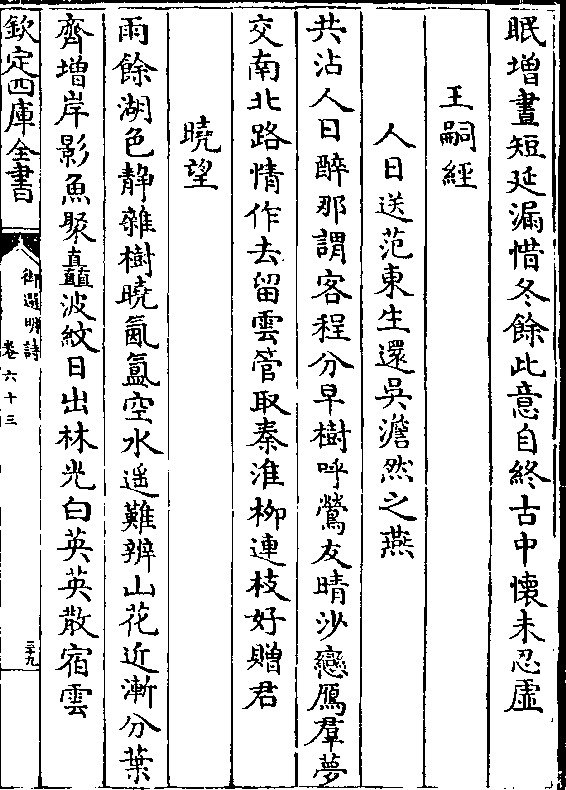 眠增晝短延漏惜冬餘此意自終古中懷未忍虛
王嗣經
人日送范東生還吳澹然之燕
共沾人日醉那謂客程分早樹呼鶯友晴沙戀鴈羣夢
交南北路情作去留雲管取秦淮柳連枝好贈君
曉望
雨餘湖色靜雜樹曉氤氳空水遥難辨山花近漸分葉
齊增岸影魚聚矗波紋日出林光白英英散宿雲
欽定四庫全書
御選明詩
卷六十三
三十九